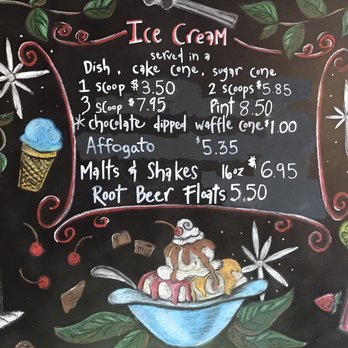 Ice Cream
served in a
Dish, cake cone, sugar cone
1 scoop $3.50 2 scoops $5.85
3 scoop $7.95 Pint 8.50
*chocolate dipped waffle cone $1.00
Affogato $5.35
Malts & Shakes 16oz $6.95
Root Beer Floats 5.50